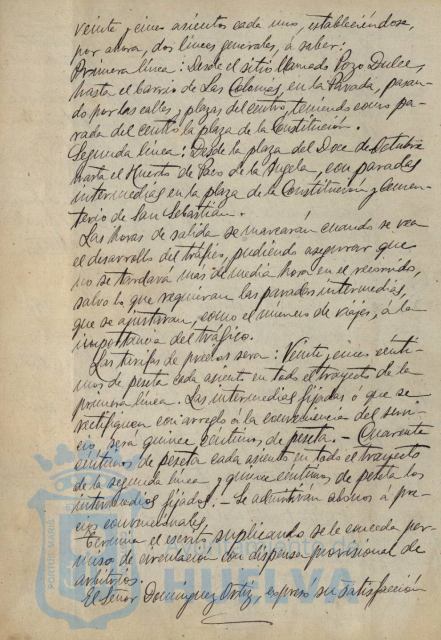 veinte y cinco asientos cada uno, estableciéndose,
por ahora, dos líneas generales, á saber:
Primera línea: Desde el sitio llamado Pozo Dulce,
hasta el barrio de Las Colonias, en la Parada, pasan-
do por las calles y plazas del centro, teniendo como pa-
rada del centro la plaza de la Constitución.
Segunda línea: Desde la plaza del Doce de Octubre
hasta el Huerto de Paco de la Angela, con paradas
intermedias en la plaza de la Constitución y Cemen-
terio de San Sebastián.
Las horas de salida se marcarán cuando se vea
el desarrollo del tráfico, pudiendo asegurar que
no se tardará mas de media hora en el recorrido,
salvo lo que requieran las paradas intermedias,
que se ajustarán, como el número de viajes, á la
importancia del tráfico.
Las tarifas de precios será: Veinte y cinco cénti-
mos de peseta cada asiento en todo el trayecto de la
primera línea. Las intermedias fijadas ó que se
rectifiquen con arreglo á la conveniencia del servi-
cio, será quince céntimos de peseta.- Cuarenta
céntimos de peseta cada asiento en todo el trayecto
de la segunda línea y quince céntimos de peseta los
intermedios fijados.- Se admitirán abonos á pre-
cios convencionales.
Termina el escrito suplicando se le conceda per-
miso de circulación con dispensa provisional de
arbitrios.
El Señor Domínguez Ortiz, expresó su satisfacción
PORTUS MARIS
HUELVA